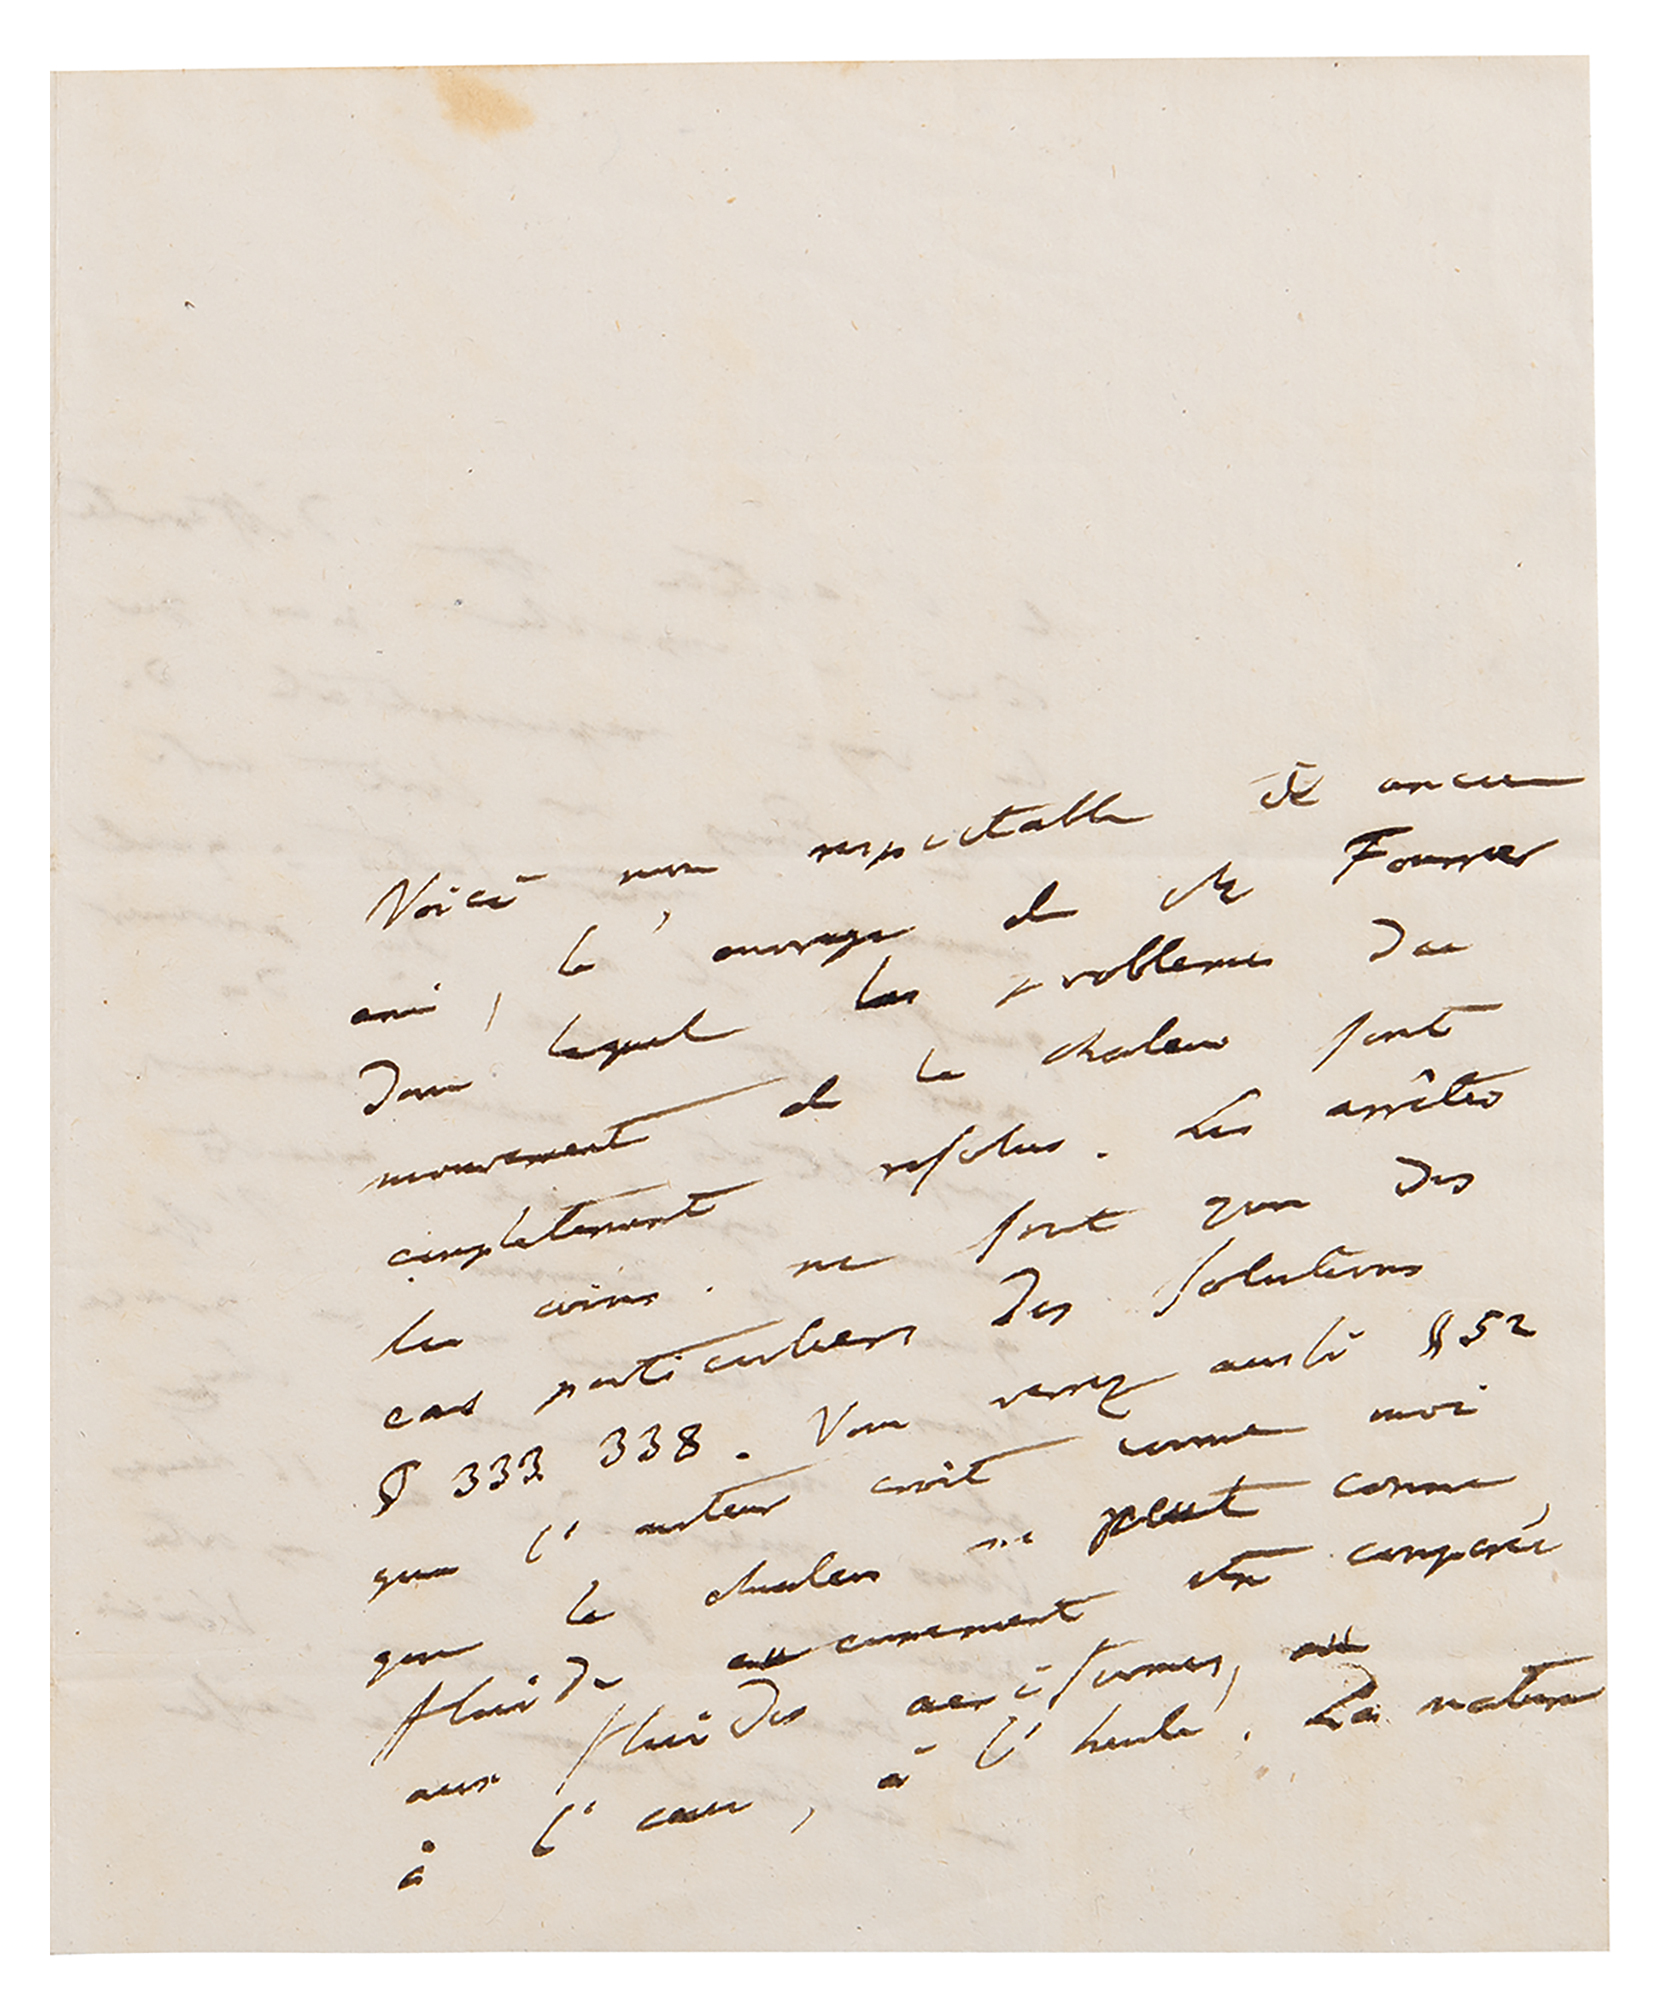 Voici mon respectable et ancien
ami, le ouvrage de Mr Fourrier
dans lequel les problemes du
mouvement de la chaleur sont
completement resolus. Les arrêtes
les coins. ne sont que des
cas particuliers des solutions
§ 333 338. Vous verrez aussi § 52
que l'auteur croit comme moi
que la chaleur ne peut comme
fluide aucunement etre comparée
aux fluides aeriformes, ou
à l'eau, à l'huile. La nature